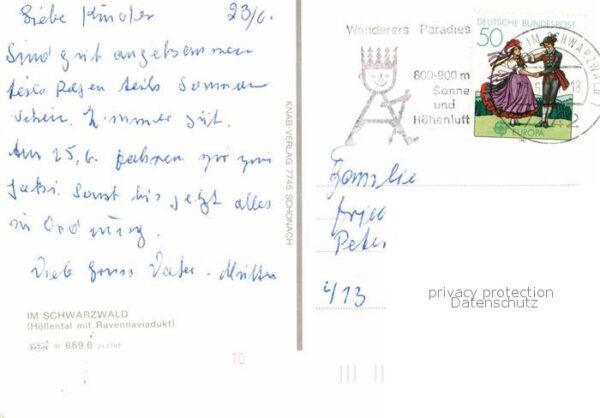 Liebe Kinder 23/6.
Sind gut angekommen
teils Regen teils Sonnen
schein. Zimmer gut.
Am 25.6. fahren wir zum
Sonst bis jetzt alles
in Ordnung.
Viele Grüsse Vater - Mutter
IM SCHWARZWALD
(Höllental mit Ravennaviadukt)
H 659.6
10
KNAB-VERLAG 7745 SCHONACH
Wanderers Paradies
800-900 m
Sonne
und
Höhenluft
DEUTSCHE BUNDESPOST
50
EUROPA
IM SCHWARZWALD
Familie
Peter
privacy protection
Datenschutz